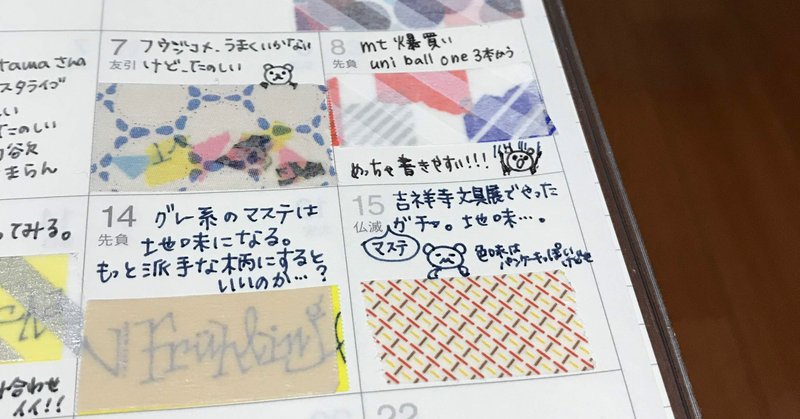 7 フウジコメ、うまくいかない
友引 けど、たのしい
8 mt 爆買い
先負 uni ball one 3本かう
めっちゃ書きやすい!!!
tama さん
スタライブ
しい
たのしい
まらん
14 グレー系のマステは
先負 地味になる。
もっと派手な柄にすると
いいのか…?
15 吉祥寺文具展でやった
仏滅 ガチャ。地味…。
マステ
色味は
パンケーキっぽい
けどせ
ってみる。
み合わせ
イイ!!
22